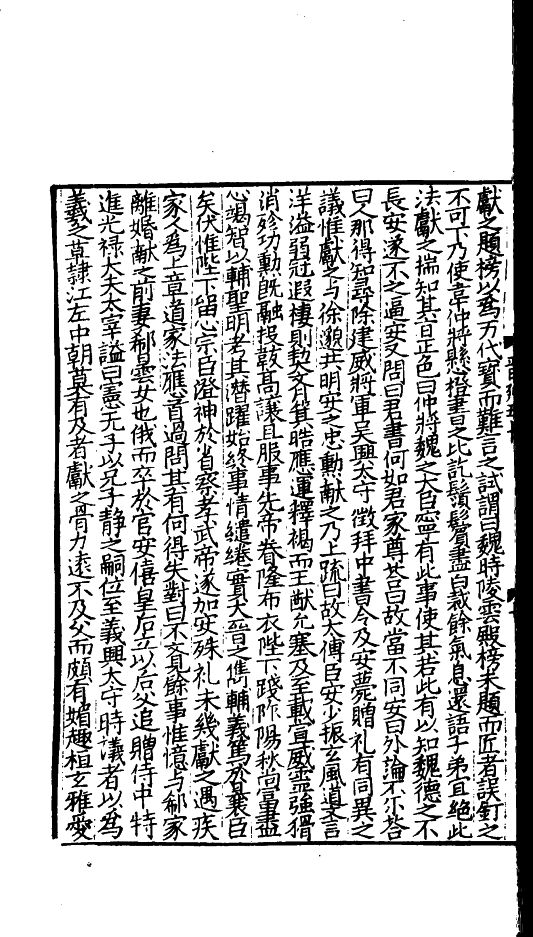 獻之題榜以爲万代寳而難言之試謂曰魏時陵雲殿榜未題而匠者誤釘之
不可下乃使韋仲將懸橙書之比訖鬚鬢盡白裁餘氣息還語子弟宜絶此
法獻之揣知其旨正色曰仲將魏之大臣寧有此事使其若此有以知魏德之不
長安遂不之逼安又問曰君書何如君家尊荅曰故當不同安曰外論不尒荅
曰人那得知尋除建威將軍吴興太守徵拜中書令及安薨贈礼有同異之
議惟獻之与徐邈共明安之忠勲献之乃上疏曰故太傅臣安少振玄風道譽
洋溢弱冠遐棲則契齊箕皓應運釋褐而王猷允塞及至載宣威靈強猾
消殄功勲旣融投韍髙讓且服事先帝眷隆布衣陛下踐阼陽秋尚富盡
心竭智以輔聖明考其潜躍始終事情繾綣實大晉之儁輔義篤於曩臣
矣伏惟陛下留心宗臣澄神於省察孝武帝遂加安殊礼未幾獻之遇疾
家人爲上章道家法應首過問其有何得失對曰不覺餘事惟憶与郗家
離婚献之前妻郗曇女也俄而卒於官安僖皇后立以后父追贈侍中特
進光禄大夫太宰謚曰憲无子以兄子静之嗣位至義興太守時議者以爲
羲之草隷江左中朝莫有及者獻之骨力遠不及父而頗有媚趣桓玄雅愛